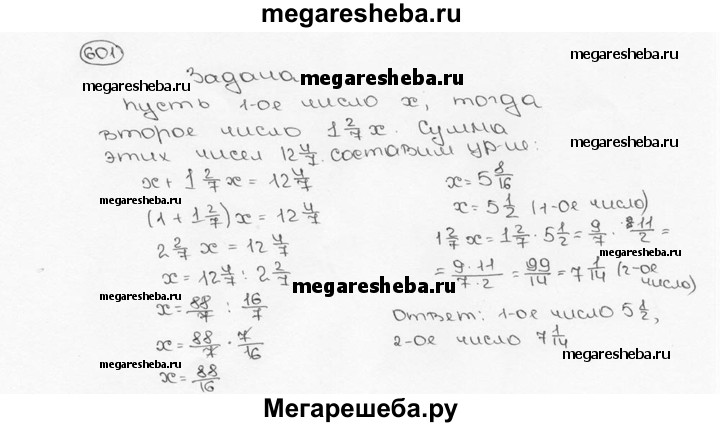 megaresheba.ru
601
megaresheba.ru megaresheba.ru
Задача megaresheba.ru
Пусть 1-ое число x, тогда
второе число 1 2/7 x. Сумма
этих чисел 12 4/7. составим ур-ие:
x + 1 2/7 x = 12 4/7
megaresheba.ru
(1 + 1 2/7) x = 12 4/7
2 2/7 x = 12 4/7
x = 12 4/7 : 2 2/7
megaresheba.ru
x = 88/7 : 16/7
x = 88/7 · 7/16
megaresheba.ru
x = 88/16
x = 5 8/16
megaresheba.ru
x = 5 1/2 (1-ое число)
1 2/7 x = 1 2/7 · 5 1/2 = 9/7 · 11/2 =
megaresheba.ru
= 9·11/7·2 = 99/14 = 7 1/14 (2-ое
число)
megaresheba.ru
Ответ: 1-ое число 5 1/2,
2-ое число 7 1/14
megaresheba.ru
Мегарешеба.ру